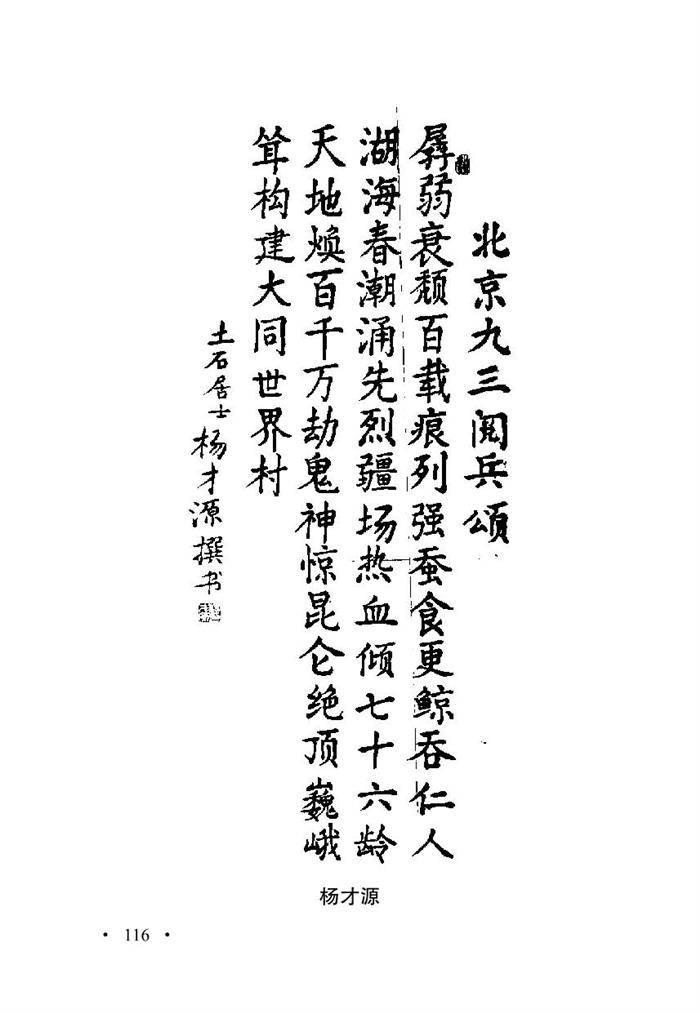 北京九三阅兵颂
孱弱衰颓百载痕列强蚕食更鲸吞仁人
湖海春潮涌先烈疆场热血倾七十六龄
天地焕百千万劫鬼神惊昆仑绝顶巍峨
耸构建大同世界村
土石居士杨才源撰书
杨才源
• 116 •